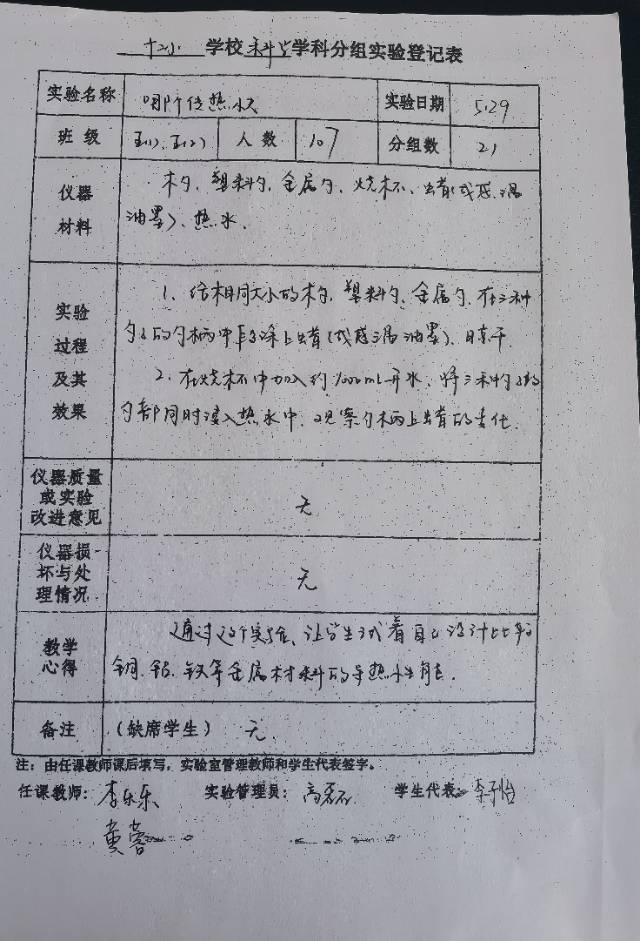 十二小 学校 科学 学科分组实验登记表
实验名称 哪个传热快 实验日期 5.29
班级 五(1)、五(2) 人数 107 分组数 21
仪器材料 木勺、塑料勺、金属勺、烧杯、蜡(或感温
油墨)、热水.
实验过程及其效果
1、给相同大小的木勺、塑料勺、金属勺,在三种
勺子的勺柄中段涂上蜡(或感温油墨)、晾干
2、在烧杯中加入约 400mL开水,将三种勺子的
勺部同时浸入热水中,观察勺柄上蜡的变化.
仪器质量或实验改进意见 无
仪器损坏与处理情况 无
教学心得 通过这个实验、让学生试着自己设计比较
铜、铝、铁等金属材料的导热性能.
备注 (缺席学生) 无.
注:由任课教师课后填写,实验室管理教师和学生代表签字。
任课教师:李乐乐 实验管理员: 学生代表:李子怡
黄蓉